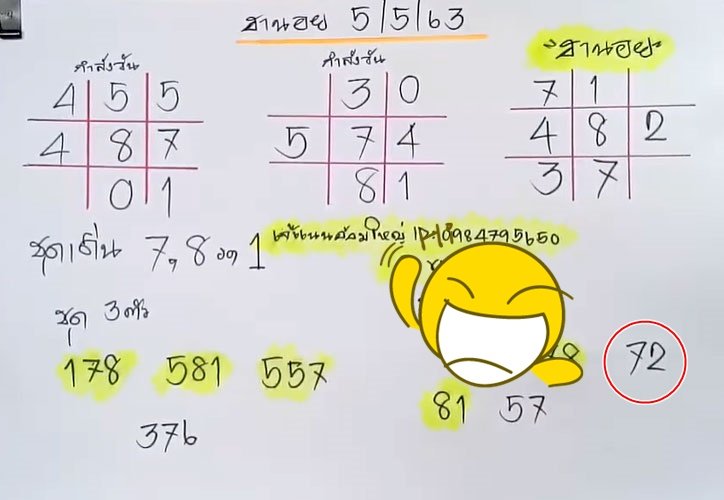 ฮานอย 5/5/63
กำลังวัน
4 5 5
4 8 7
0 1
กำลังวัน
3 0
5 7 4
8 1
"ฮานอย"
7 1
4 8 2
3 7
ชุดเด่น 7, 8 รอง 1
0984795650
ชุด 3ตัว
178 581 557
376
72
81 57